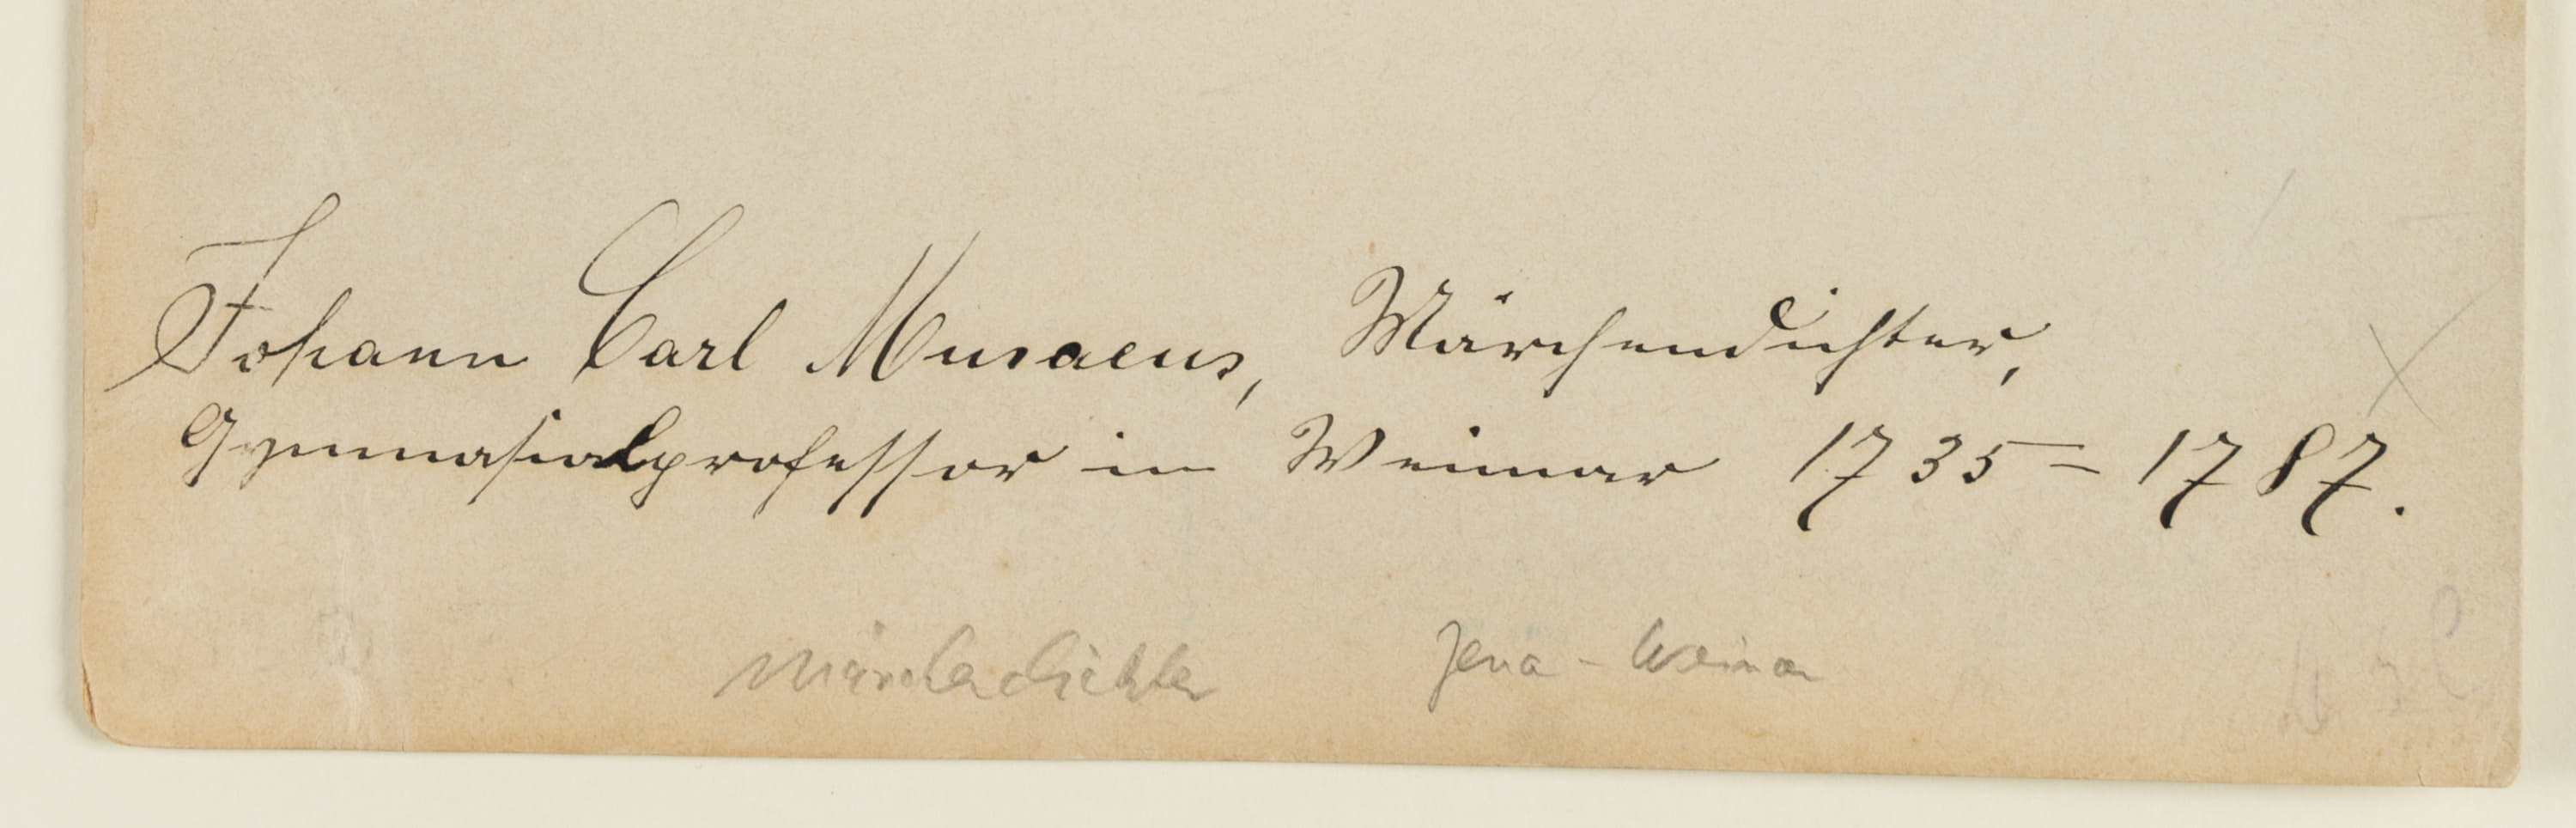 Johann Carl Musaeus, Märchendichter,
Gymnasialprofessor in Weimar 1735 = 1787.
Märchendichter Jena - Weimar